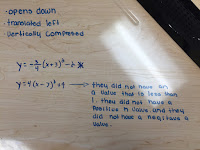 -opens down
-translated left
-Vertically compressed
y = -3/4 (x+3)² - 6 *
y = 4(x - 3)² + 9 → they did not have an
a value that is less than
1. they did not have a
Positive k value and they
did not have a negitave a
value.